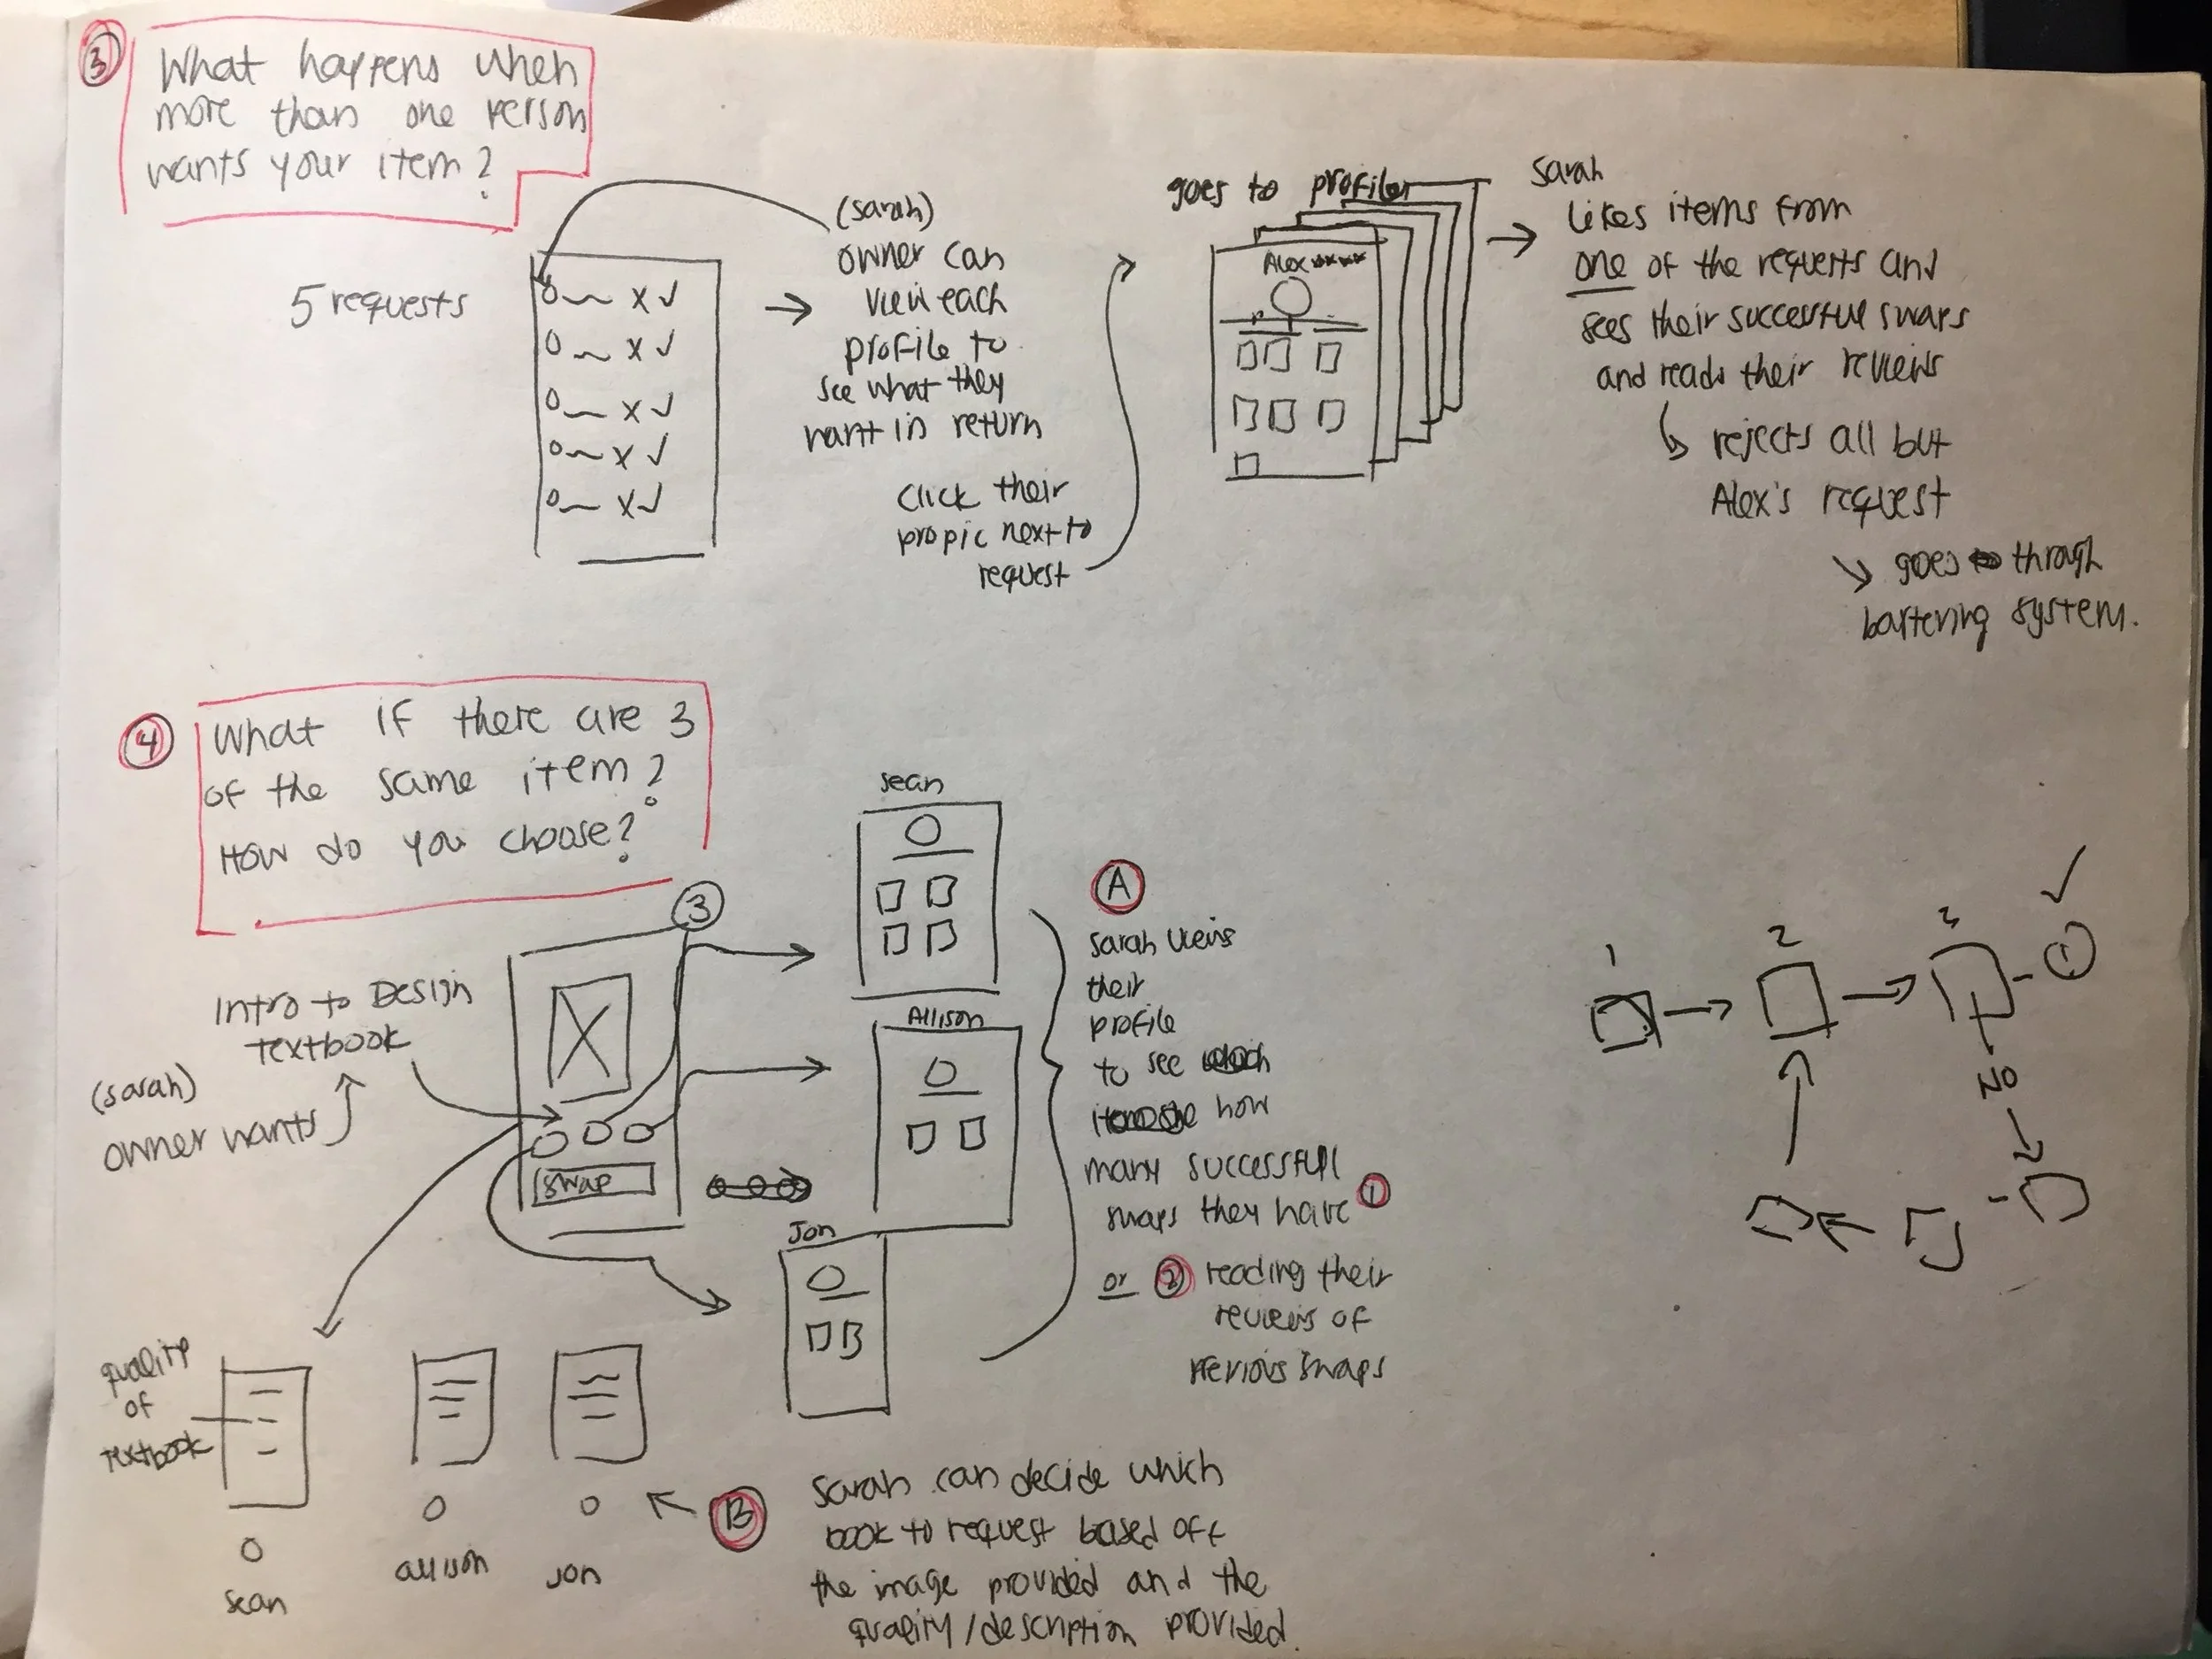 3
What happens when
more than one person
wants your item?
5 requests
(sarah)
owner can
view each
profile to
see what they
want in return
click their
propic next to
request
goes to profiles
Alex ****
Sarah
likes items from
one of the requests and
sees their successful swaps
and reads their reviews
rejects all but
Alex's request
goes through
bartering system.
4
What if there are 3
of the same item?
How do you choose?
3
Intro to Design
textbook
(sarah)
owner wants
swap
sean
Allison
Jon
A
Sarah views
their
profile
to see
how
many successful
swaps they have 1
or 2 reading their
reviews of
previous swaps
1
2
3
NO
quality
of
textbook
sean
allison
Jon
B
Sarah can decide which
book to request based off
the image provided and the
quality/description provided.